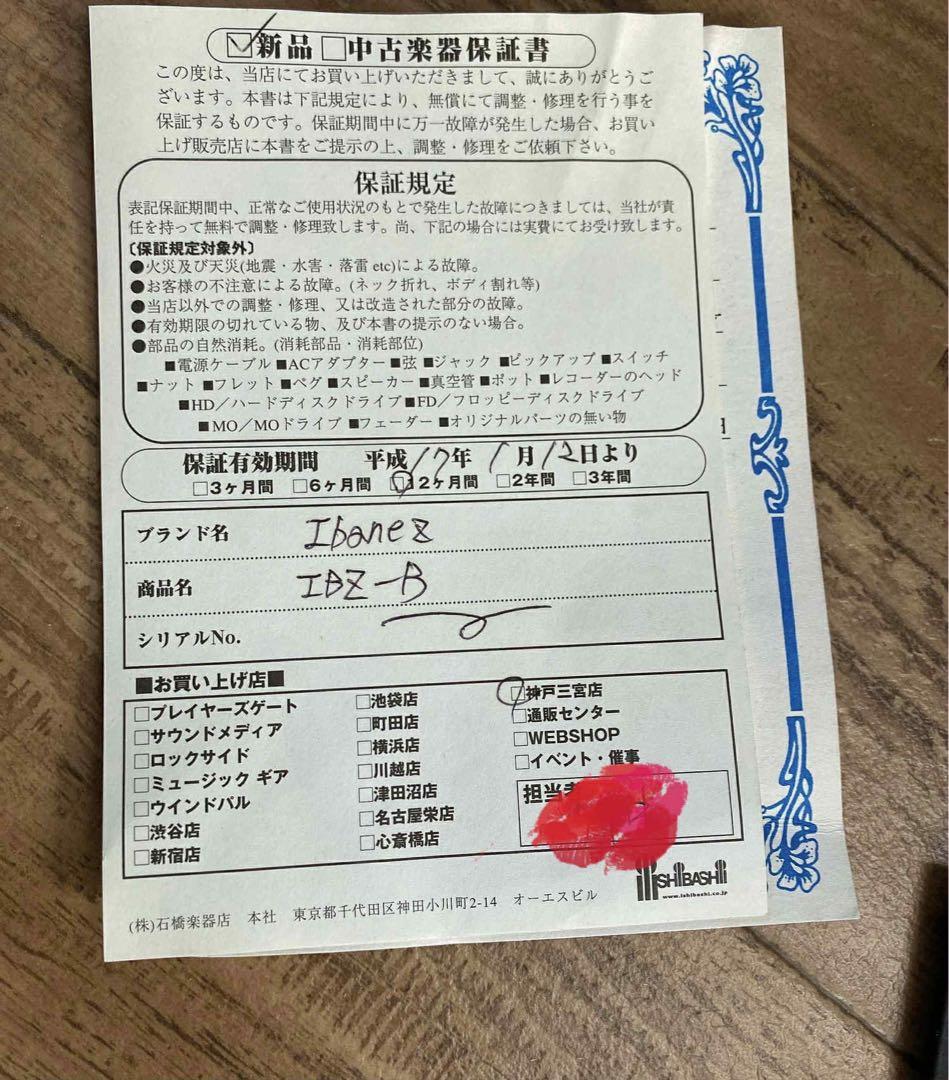 ☑新品□中古楽器保証書
この度は、当店にてお買い上げいただきまして、誠にありがとうご
ざいます。本書は下記規定により、無償にて調整・修理を行う事を
保証するものです。保証期間中に万一故障が発生した場合、お買い
上げ販売店に本書をご提示の上、調整・修理をご依頼下さい。
保証規定
表記保証期間中、正常なご使用状況のもとで発生した故障につきましては、当社が責
任を持って無料で調整・修理致します。尚、下記の場合には実費にてお受け致します。
〔保証規定対象外〕
●火災及び天災(地震・水害・落雷 etc)による故障。
●お客様の不注意による故障。(ネック折れ、ボディ割れ等)
●当店以外での調整・修理、又は改造された部分の故障。
●有効期限の切れている物、及び本書の提示のない場合。
●部品の自然消耗。(消耗部品・消耗部位)
■電源ケーブル ■ACアダプター ■弦 ■ジャック ■ピックアップ ■スイッチ
■ナット ■フレット ■ペグ ■スピーカー ■真空管 ■ポット ■レコーダーのヘッド
■HD／ハードディスクドライブ ■FD／フロッピーディスクドライブ
■MO／MOドライブ ■フェーダー ■オリジナルパーツの無い物
保証有効期間 平成17年 1月12日より
□3ヶ月間 □6ヶ月間 □12ヶ月間 □2年間 □3年間
ブランド名 Ibanez
商品名 IBZ-B
シリアルNo.
■お買い上げ店■
□プレイヤーズゲート
□サウンドメディア
□ロックサイド
□ミュージック ギア
□ウインドパル
□渋谷店
□新宿店
□池袋店
□町田店
□横浜店
□川越店
□津田沼店
□名古屋栄店
□心斎橋店
□神戸三宮店
□通販センター
□WEBSHOP
□イベント・催事
担当
ISHIBASHI
www.ishibashi.co.jp
(株)石橋楽器店 本社 東京都千代田区神田小川町2-14 オーエスビル